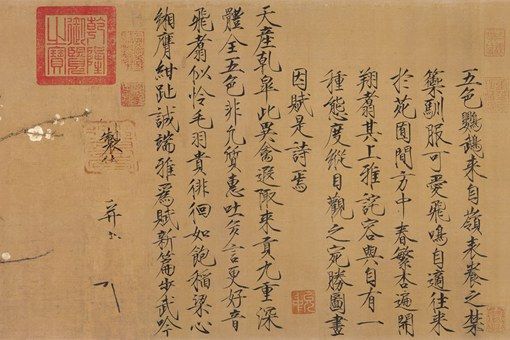 五色鸚鵡來自嶺表養之禁
籞馴服可愛飛鳴自適往來
於苑囿間方中春繁杏遍開
翔翥其上雅詫容與自有一
種態度縱目觀之宛勝圖畫
因賦是詩焉
天產乾皋此異禽遐陬來貢九重深
體全五色非凡質惠吐多言更好音
飛翥似憐毛羽貴徘徊如飽稻粱心
緗膺紺趾誠端雅為賦新篇步武吟
製
并
乾隆
御覽
之寶